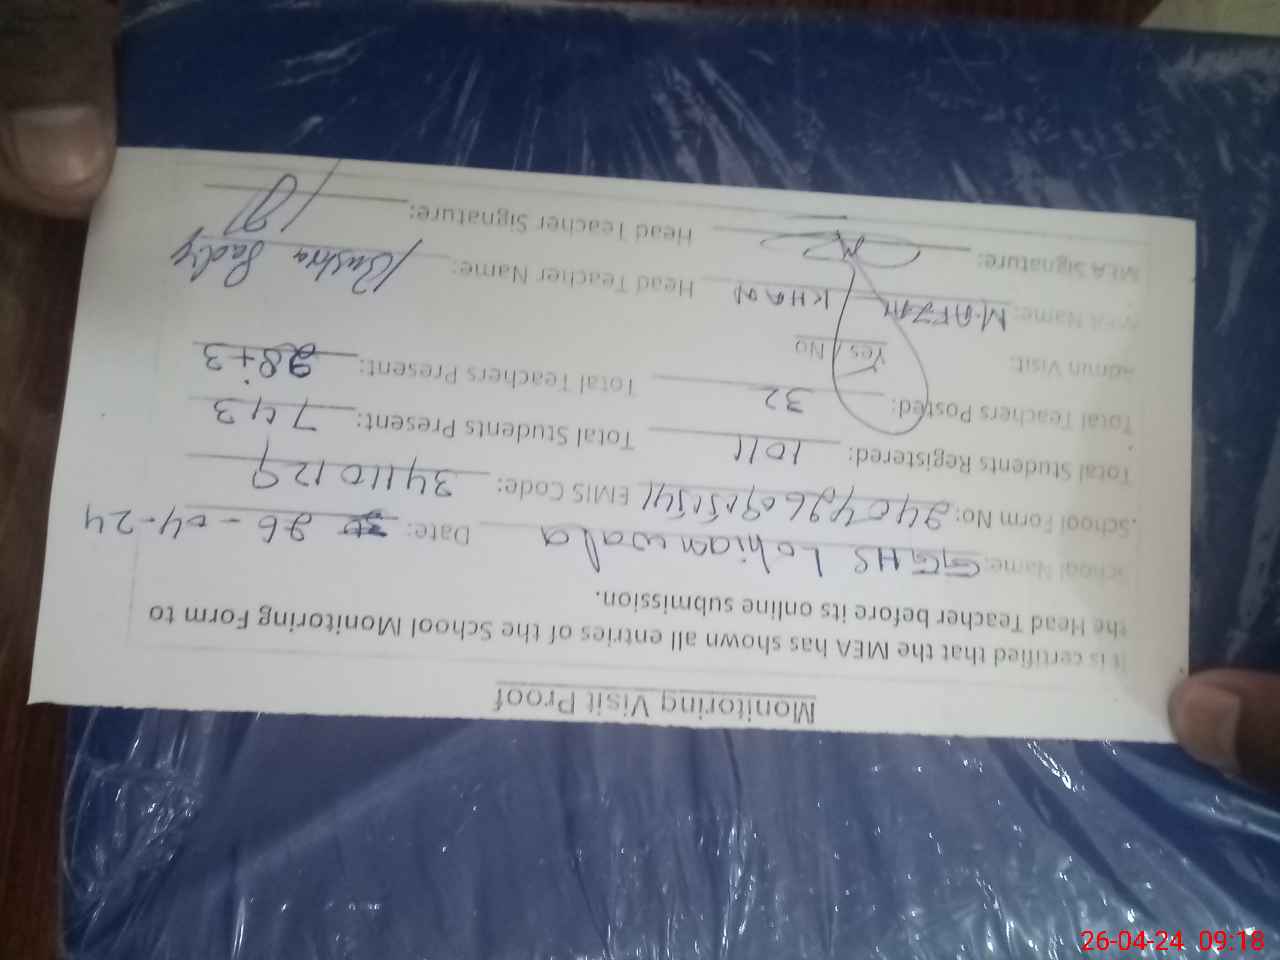 Monitoring Visit Proof
It is certified that the MEA has shown all entries of the School Monitoring Form to
the Head Teacher before its online submission.
School Name: GGHS Lohianwala Date: 26-04-24
School Form No: EMIS Code: 34110129
Total Students Registered: 1011 Total Students Present: 743
Total Teachers Posted: 32 Total Teachers Present: 28+3
Admin Visit: Yes / No
MEA Name: M.AFZAL KHAN Head Teacher Name: Bushra
MEA Signature: Head Teacher Signature:
26-04-24 09:18